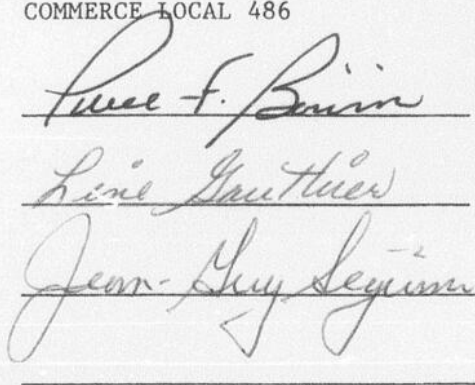 COMMERCE LOCAL 486
F. Boivin
Line Gauthier
Jean-Guy Séguin